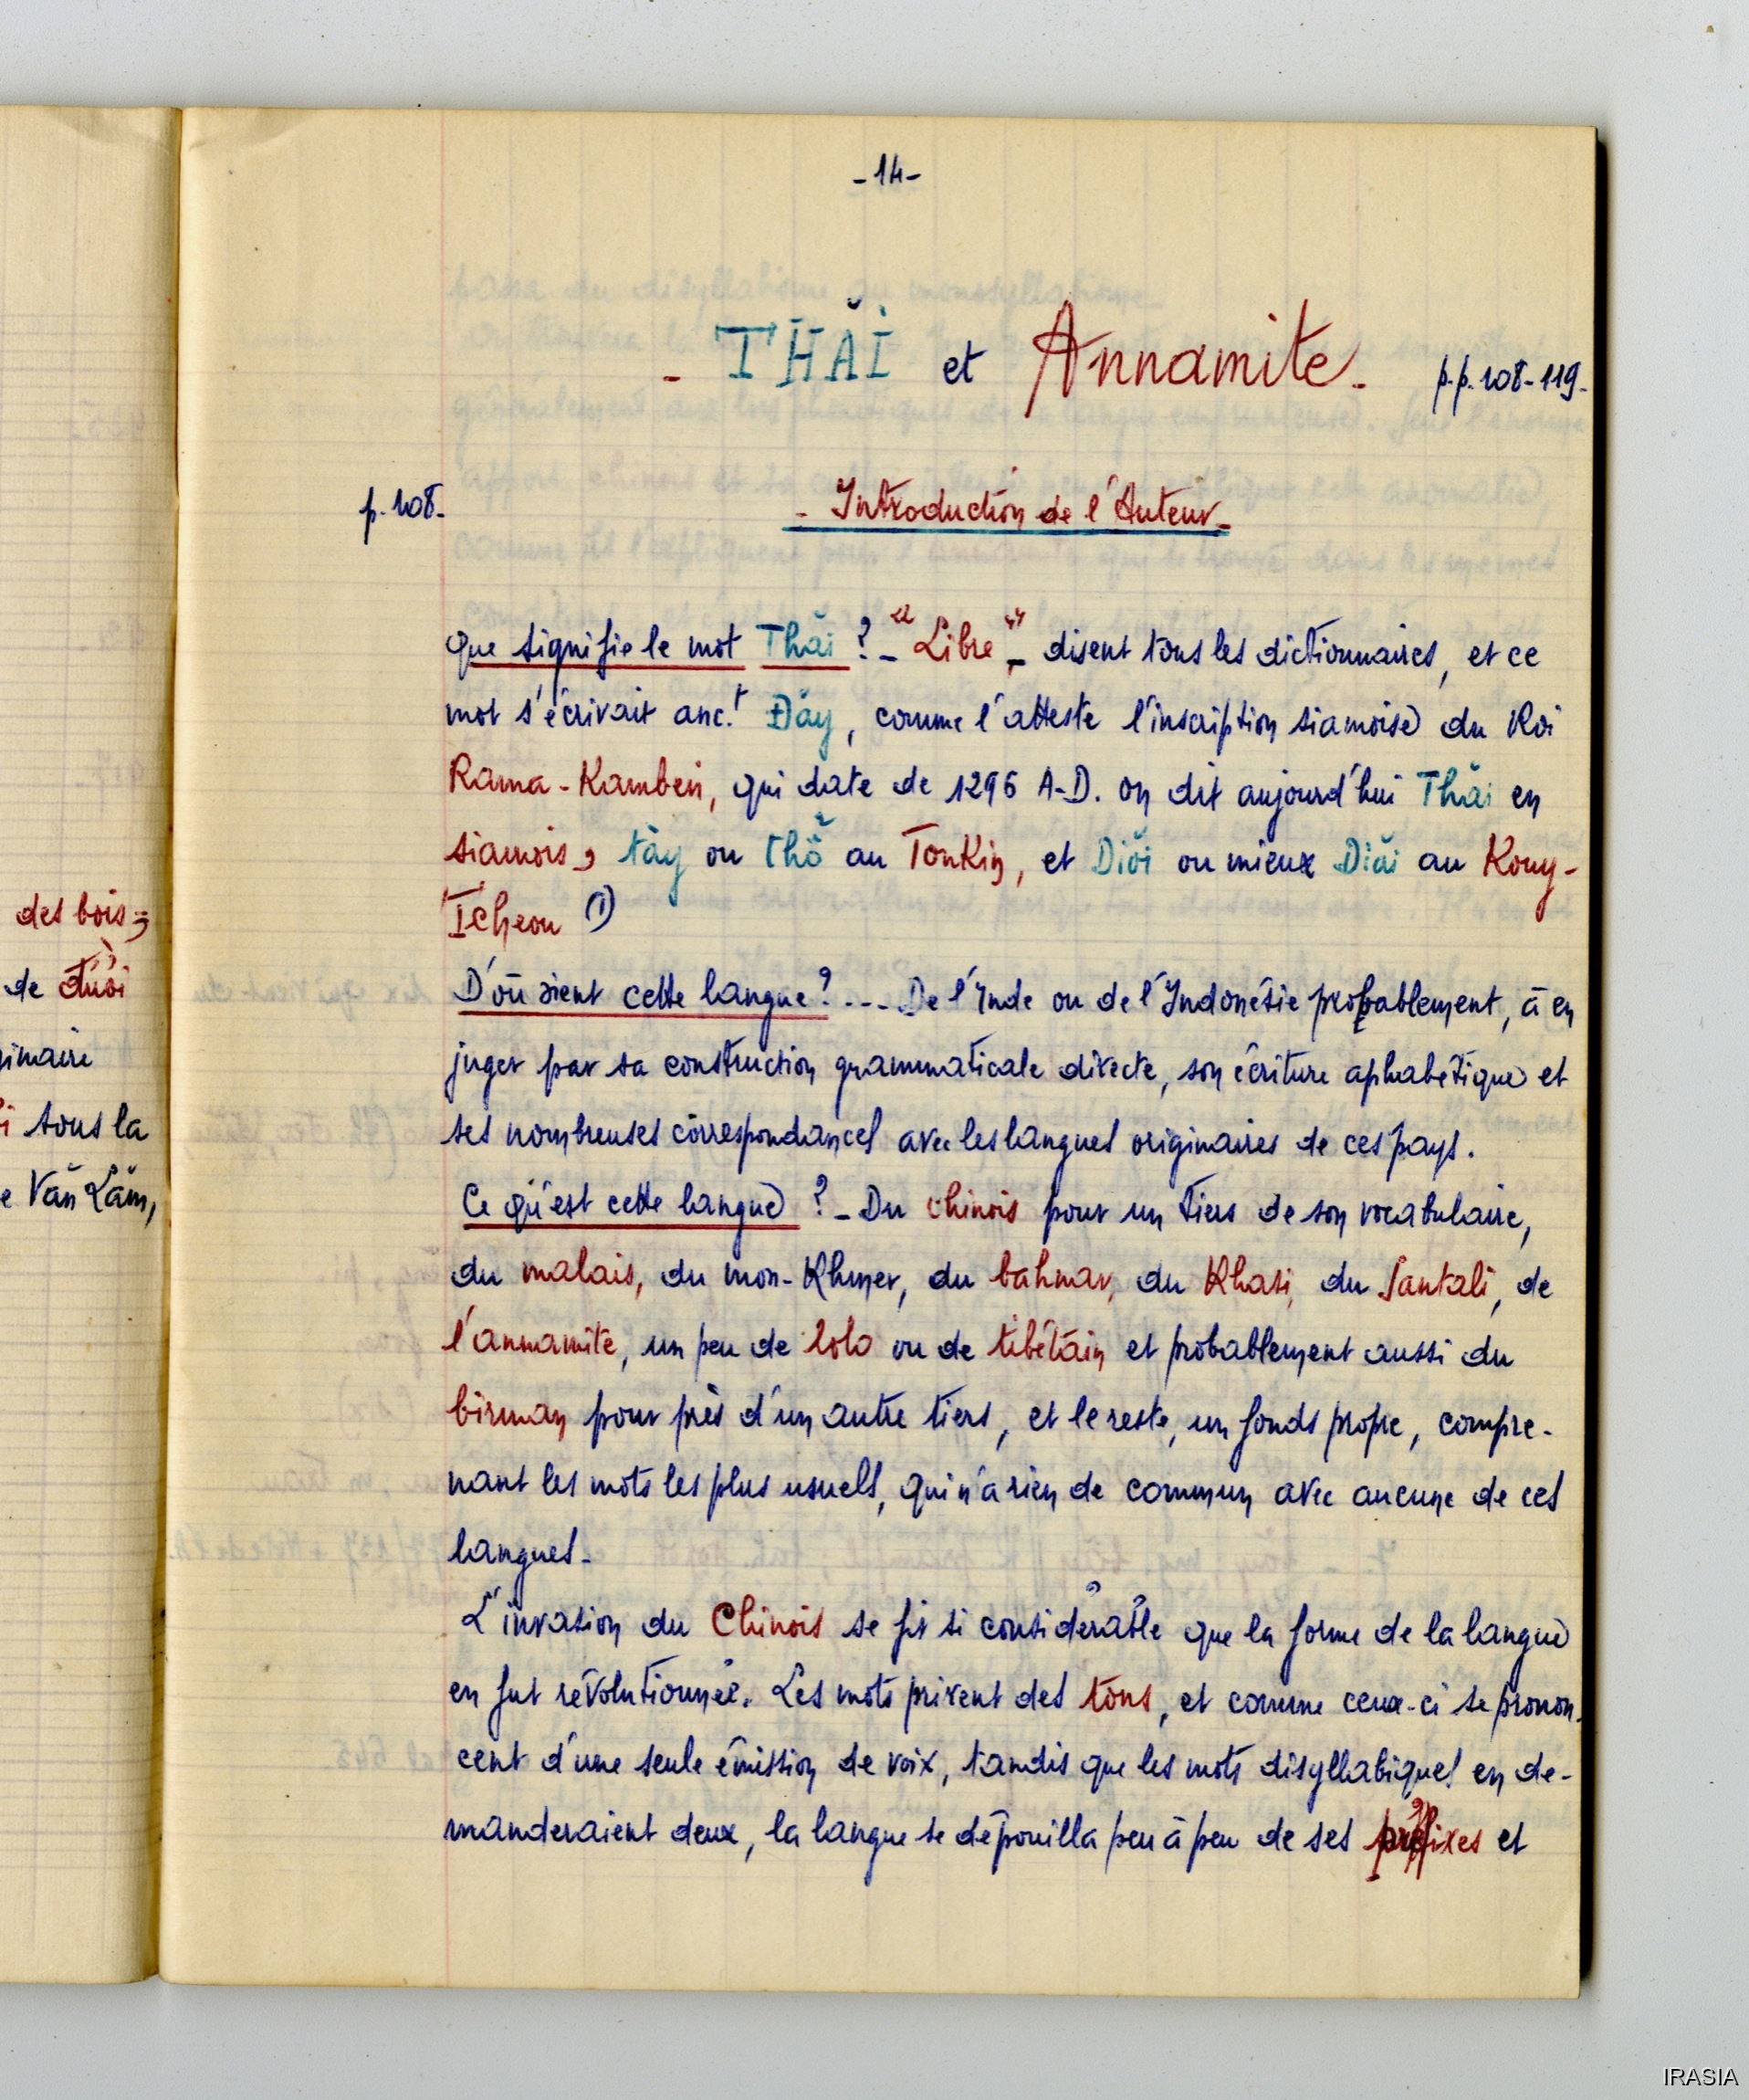 des bois ;
de đười
ginaire
i sous la
e Văn Lâm,
- 14 -
- THĂI et Annamite - p.p. 108-119.
p. 108. - Introduction de l'Auteur -
Que signifie le mot Thăi ? - "Libre" - disent tous les dictionnaires, et ce
mot s'écrivait anc.t Đăy, comme l'atteste l'inscription siamoise du Roi
Rama-Kambeń, qui date de 1296 A-D. On dit aujourd'hui Thăi en
siamois, tày ou thổ au Tonkin, et Diŏi ou mieux Diăi au Kouy-
Tcheou (1)
D'où vient cette langue ? ... De l'Inde ou de l'Indonésie probablement, à en
juger par sa construction grammaticale directe, son écriture aphabétique et
ses nombreuses correspondances avec les langues originaires de ces pays.
Ce qu'est cette langue ? - Du chinois pour un tiers de son vocabulaire,
du malais, du mon-Khmer, du bahnar, du Khasi, du Santali, de
l'annamite, un peu de lolo ou de tibétain et probablement aussi du
birman pour près d'un autre tiers, et le reste, un fonds propre, compre-
nant les mots les plus usuels, qui n'a rien de commun avec aucune de ces
langues -
L'invasion du Chinois se fit si considérable que la forme de la langue
en fut révolutionnée. Les mots prirent des tons, et comme ceux-ci se pronon-
cent d'une seule émission de voix, tandis que les mots disyllabiques en de-
manderaient deux, la langue se dépouilla peu à peu de ses préfixes et
IRASIA